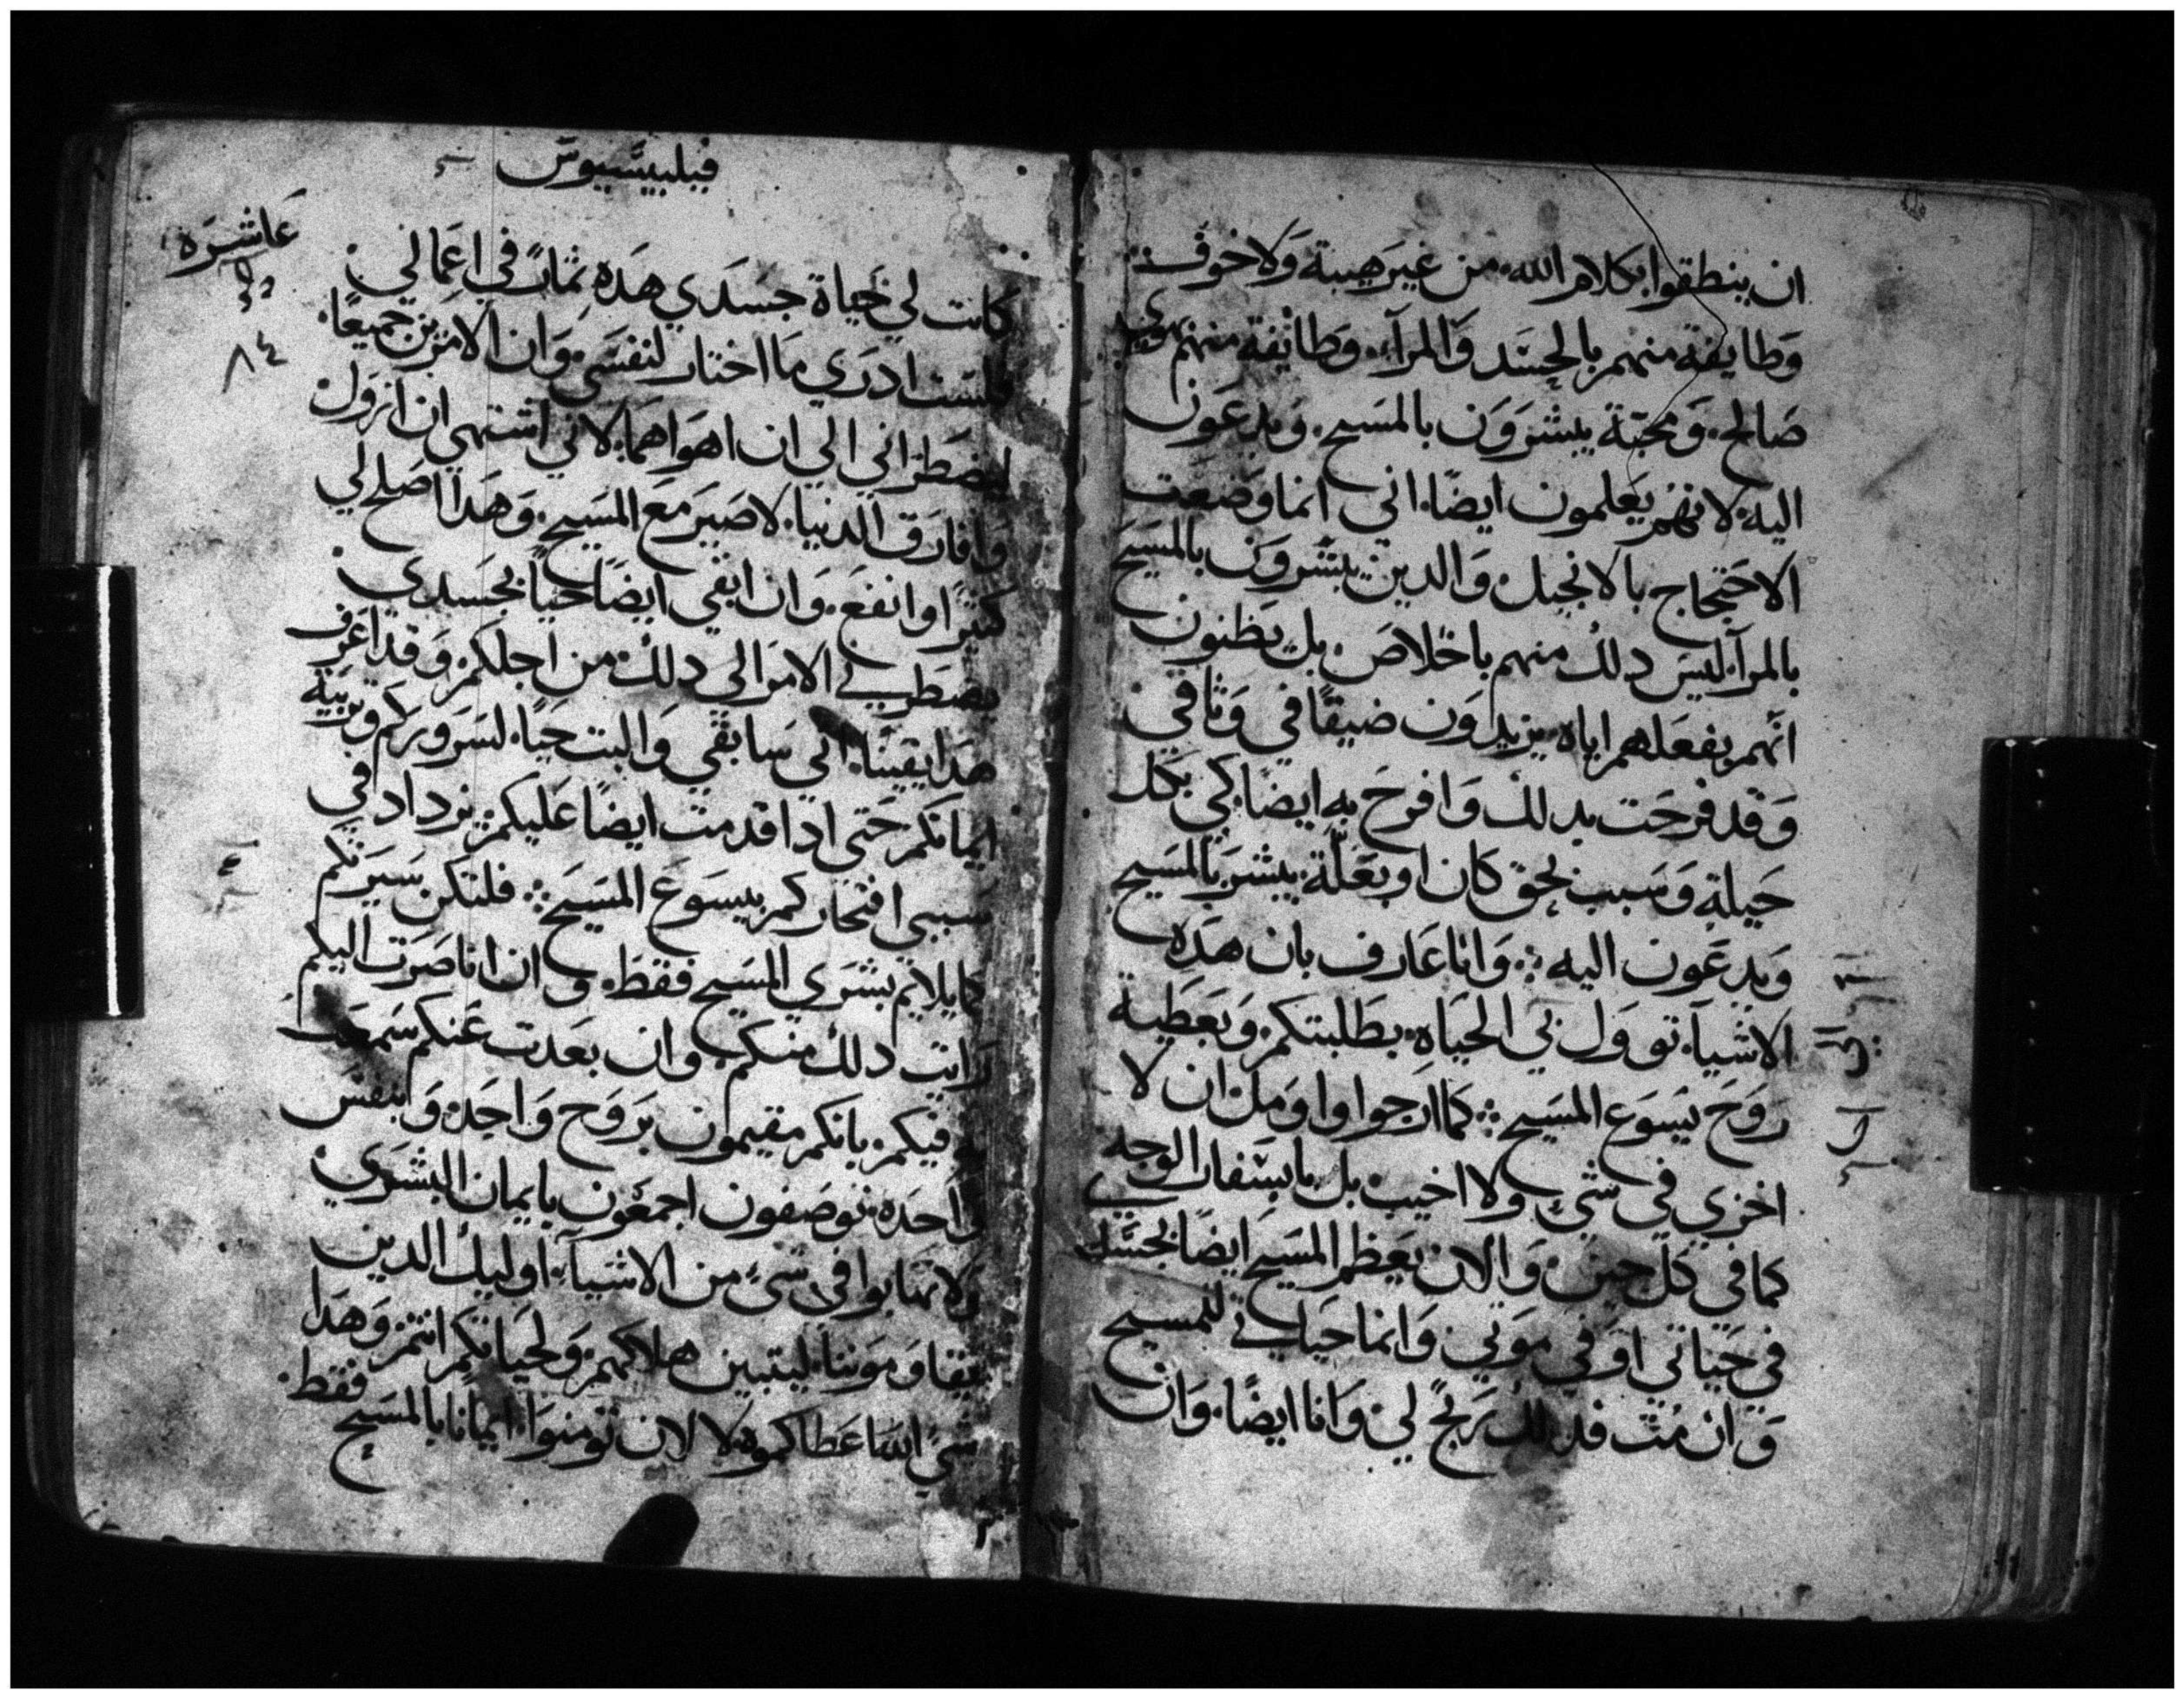 ان ينطقوا بكلام الله من غير هيبة ولا خوف
وطايفة منهم بالحسد والمرآء وطائفة منهم
صالح ومحبة يبشرون بالمسيح ويدعون
اليه لانهم يعلمون ايضا اني انما وضعت
الاحتجاج بالانجيل والدين يبشرون بالمسيح
بالمرآء ليس دلك منهم باخلاص بل يظنون
انهم بفعلهم اياه يزيدون ضيقا في وثاقي
وقد فرحت بدلك وافرح به ايضا كي بكل
حيلة وسبب بحق كان او بعلة يبشر بالمسيح
ويدعون اليه وانا عارف بان هده
الاشيآء توول بي الحياه بطلبتكم وبعطية
روح يسوع المسيح كما ارجوا واومل ان لا
اخزي في شيء ولا اخيب بل باسفار الوجه
كما في كل حين والان يعظم المسيح ايضا بجسدي
في حياتي او في موتي وانما حياتي للمسيح
وان مت فدلك ربح لي وانا ايضا وان
فيلبيسيوس
عاشره
٨٤
كانت لي حياة جسدي هده ثمارا في اعمالي
فلست ادري ما اختار لنفسي وان الامرين جميعا
ليضطراني الي ان اهواهما لاني اشتهي ان ازول
وافارق الدنيا لاصير مع المسيح وهدا اصلح لي
كثيرا وانفع وان ابقي ايضا حيا بجسدي
يضطرني الامر الي دلك من اجلكم وقد اعرف
هدا يقينا اني سابقي والبت حيا لسروركم وتربية
ايمانكم حتي ادا قدمت ايضا عليكم يزداد في
سببي افتخاركم بيسوع المسيح فلتكن سيرتكم
كما يلايم بشري المسيح فقط وان انا صرت اليكم
رايت دلك منكم وان بعدت عنكم سمعت
فيكم بانكم مقيمون بروح واحده وبنفس
واحده توصفون اجمعون بايمان البشري
ولا تهابوا في شيء من الاشيآء اوليك الدين
يقاومونا ليتبين هلاكهم ولحياتكم انتم وهدا
شيء اعطاكموه لا لان تومنوا ايمانا بالمسيح فقط